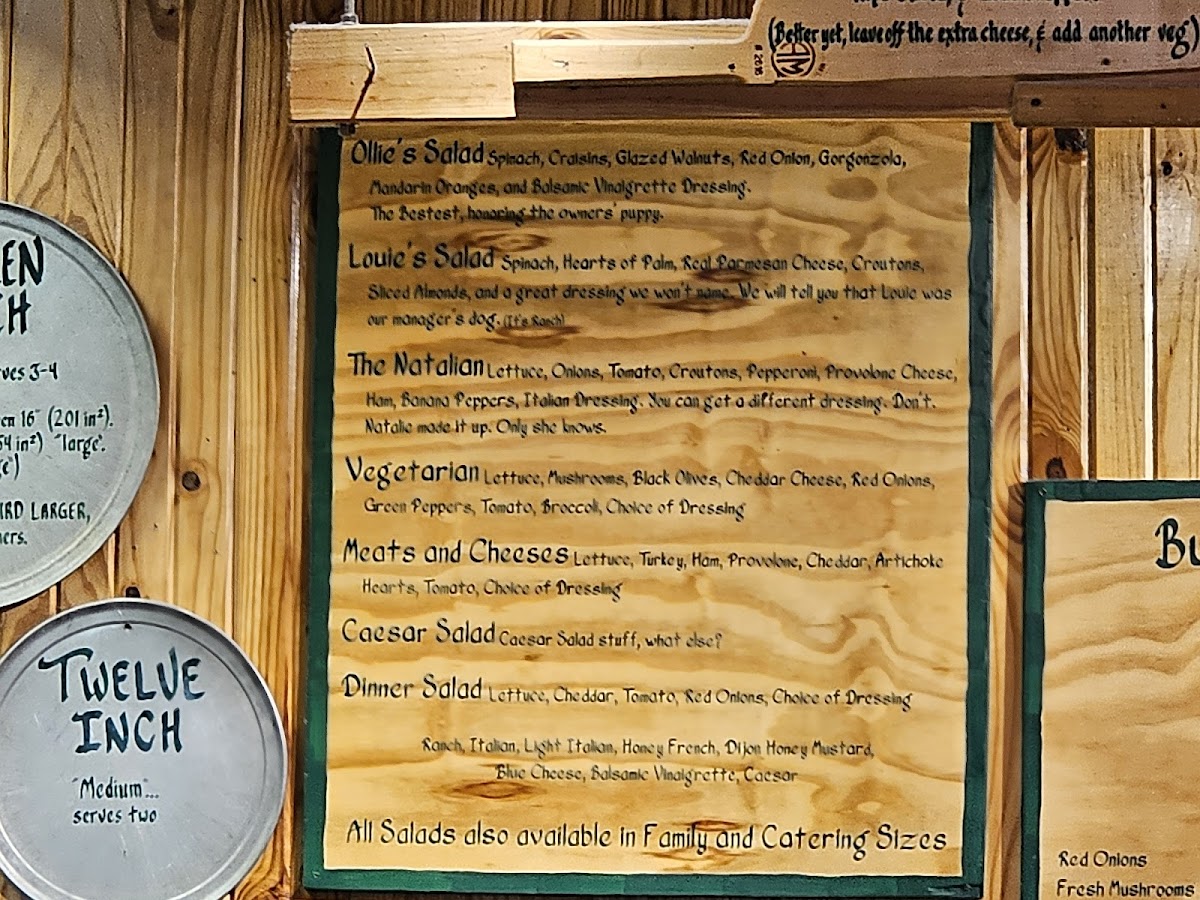 (Better yet, leave off the extra cheese, & add another veg)
Ollie's Salad Spinach, Craisins, Glazed Walnuts, Red Onion, Gorgonzola,
Mandarin Oranges, and Balsamic Vinaigrette Dressing.
The Bestest, honoring the owners' puppy.
Louie's Salad Spinach, Hearts of Palm, Real Parmesan Cheese, Croutons,
Sliced Almonds, and a great dressing we won't name. We will tell you that Louie was
our manager's dog. (It's Ranch)
The Natalian Lettuce, Onions, Tomato, Croutons, Pepperoni, Provolone Cheese,
Ham, Banana Peppers, Italian Dressing. You can get a different dressing. Don't.
Natalie made it up. Only she knows.
Vegetarian Lettuce, Mushrooms, Black Olives, Cheddar Cheese, Red Onions,
Green Peppers, Tomato, Broccoli, Choice of Dressing
Meats and Cheeses Lettuce, Turkey, Ham, Provolone, Cheddar, Artichoke
Hearts, Tomato, Choice of Dressing
Caesar Salad Caesar Salad stuff, what else?
Dinner Salad Lettuce, Cheddar, Tomato, Red Onions, Choice of Dressing
Ranch, Italian, Light Italian, Honey French, Dijon Honey Mustard,
Blue Cheese, Balsamic Vinaigrette, Caesar
All Salads also available in Family and Catering Sizes
EN
CH
ves 3-4
en 16" (201 in²).
54 in²) "large".
ge")
IRD LARGER,
ners.
TWELVE
INCH
"Medium"...
serves two
Bu
Red Onions
Fresh Mushrooms